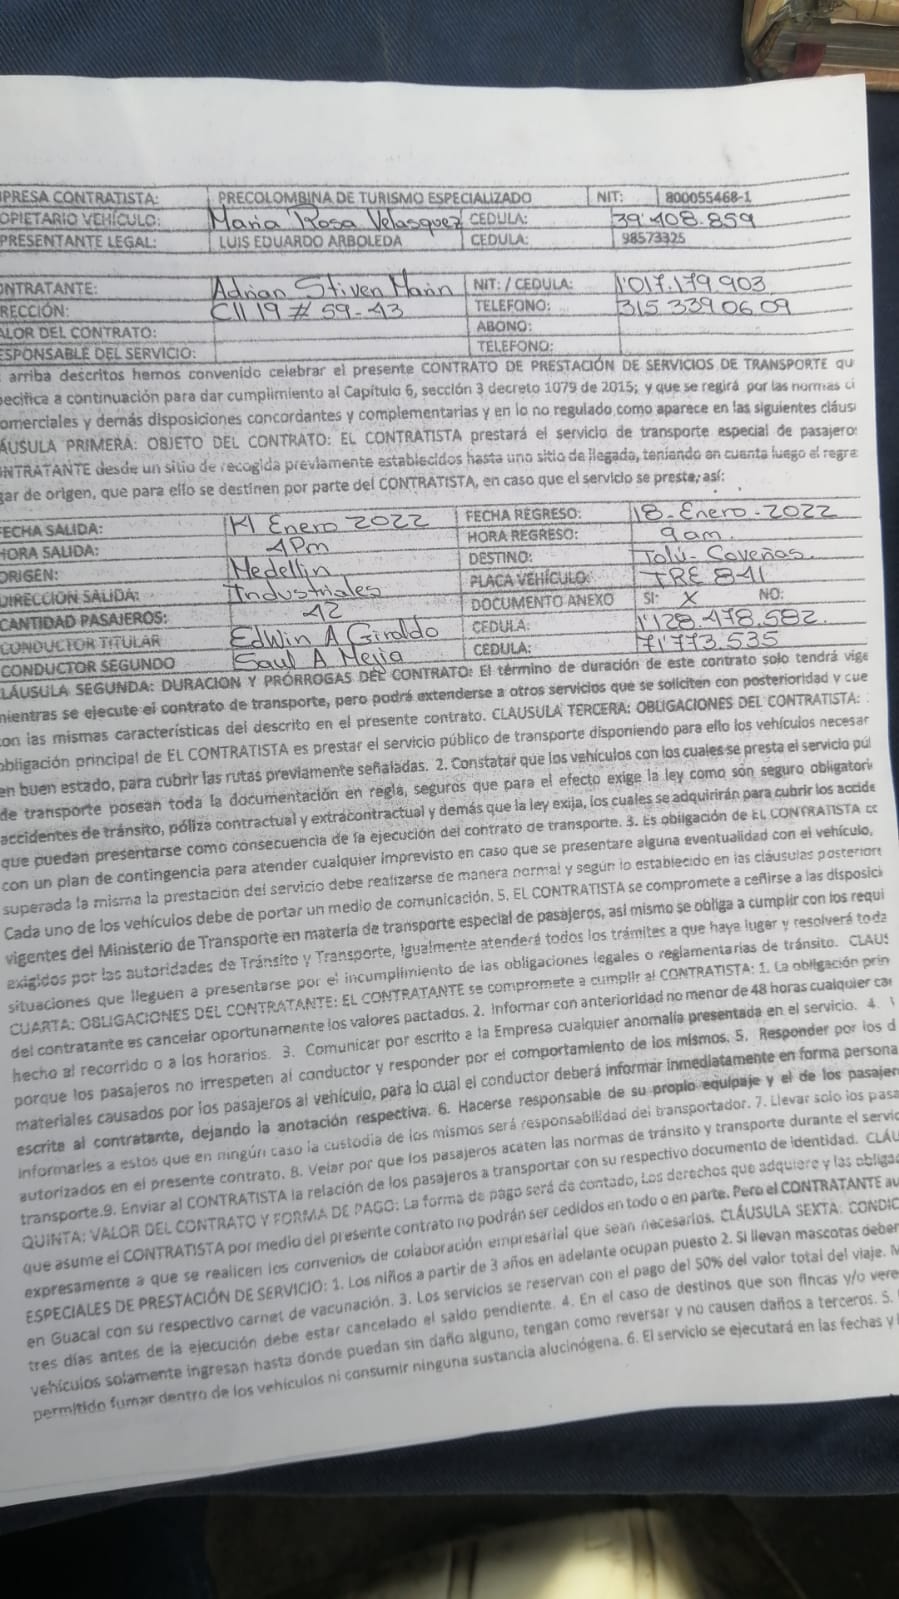 PRESA CONTRATISTA: PRECOLOMBINA DE TURISMO ESPECIALIZADO NIT: 800055468-1
OPIETARIO VEHÍCULO: Maria Rosa Velasquez CEDULA: 39'408.859
PRESENTANTE LEGAL: LUIS EDUARDO ARBOLEDA CEDULA: 98573325
ONTRATANTE: Adrian Stiven Marin NIT: / CEDULA: 1'017.179.903
RECCIÓN: Cll 19 # 59-43 TELEFONO: 315 339 06 09
ALOR DEL CONTRATO: ABONO:
ESPONSABLE DEL SERVICIO: TELEFONO:
arriba descritos hemos convenido celebrar el presente CONTRATO DE PRESTACIÓN DE SERVICIOS DE TRANSPORTE qu
pecifica a continuación para dar cumplimiento al Capítulo 6, sección 3 decreto 1079 de 2015; y que se regirá por las normas ci
omerciales y demás disposiciones concordantes y complementarias y en lo no regulado como aparece en las siguientes cláus
ÁUSULA PRIMERA: OBJETO DEL CONTRATO: EL CONTRATISTA prestará el servicio de transporte especial de pasajero
ONTRATANTE desde un sitio de recogida previamente establecidos hasta uno sitio de llegada, teniendo en cuenta luego el regre
gar de origen, que para ello se destinen por parte del CONTRATISTA, en caso que el servicio se preste, así:
FECHA SALIDA: Enero 2022 FECHA REGRESO: 18-Enero-2022
HORA SALIDA: 4Pm HORA REGRESO: 9am.
ORIGEN: Medellin DESTINO: Tolú-Coveñas.
DIRECCION SALIDA: Industriales PLACA VEHÍCULO: TRE 841
CANTIDAD PASAJEROS: 42 DOCUMENTO ANEXO SI: X NO:
CONDUCTOR TITULAR EdWin A Giraldo CEDULA: 1'128.478.582
CONDUCTOR SEGUNDO Saul A Mejia CEDULA: 71'773.535
LÁUSULA SEGUNDA: DURACION Y PRÓRROGAS DEL CONTRATO: El término de duración de este contrato solo tendrá vige
mientras se ejecute el contrato de transporte, pero podrá extenderse a otros servicios que se soliciten con posterioridad y cue
con las mismas características del descrito en el presente contrato. CLAUSULA TERCERA: OBLIGACIONES DEL CONTRATISTA:
obligación principal de EL CONTRATISTA es prestar el servicio público de transporte disponiendo para ello los vehículos necesar
en buen estado, para cubrir las rutas previamente señaladas. 2. Constatar que los vehículos con los cuales se presta el servicio púl
de transporte posean toda la documentación en regla, seguros que para el efecto exige la ley como són seguro obligatori
accidentes de tránsito, póliza contractual y extracontractual y demás que la ley exija, los cuales se adquirirán para cubrir los accide
que puedan presentarse como consecuencia de la ejecución del contrato de transporte. 3. Es obligación de EL CONTRATISTA co
con un plan de contingencia para atender cualquier imprevisto en caso que se presentare alguna eventualidad con el vehículo,
superada la misma la prestación del servicio debe realizarse de manera normal y según lo establecido en las cláusulas posterior
Cada uno de los vehículos debe de portar un medio de comunicación. 5. EL CONTRATISTA se compromete a ceñirse a las disposici
vigentes del Ministerio de Transporte en materia de transporte especial de pasajeros, así mismo se obliga a cumplir con los requi
exigidos por las autoridades de Tránsito y Transporte, igualmente atenderá todos los trámites a que haya lugar y resolverá toda
situaciones que lleguen a presentarse por el incumplimiento de las obligaciones legales o reglamentarias de tránsito. CLAUS
CUARTA: OBLIGACIONES DEL CONTRATANTE: EL CONTRATANTE se compromete a cumplir al CONTRATISTA: 1. La obligación prin
del contratante es cancelar oportunamente los valores pactados. 2. Informar con anterioridad no menor de 48 horas cualquier ca
hecho al recorrido o a los horarios. 3. Comunicar por escrito a la Empresa cualquier anomalía presentada en el servicio. 4.
porque los pasajeros no irrespeten al conductor y responder por el comportamiento de los mismos. 5. Responder por los d
materiales causados por los pasajeros al vehículo, para lo cual el conductor deberá informar inmediatamente en forma persona
escrita al contratante, dejando la anotación respectiva. 6. Hacerse responsable de su propio equipaje y el de los pasajer
informarles a estos que en ningún caso la custodia de los mismos será responsabilidad del transportador. 7. Llevar solo los pasa
autorizados en el presente contrato. 8. Velar por que los pasajeros acaten las normas de tránsito y transporte durante el servic
transporte.9. Enviar al CONTRATISTA la relación de los pasajeros a transportar con su respectivo documento de identidad. CLÁU
QUINTA: VALOR DEL CONTRATO Y FORMA DE PAGO: La forma de pago será de contado, Los derechos que adquiere y las obliga
que asume el CONTRATISTA por medio del presente contrato no podrán ser cedidos en todo o en parte. Pero el CONTRATANTE au
expresamente a que se realicen los convenios de colaboración empresarial que sean necesarios. CLÁUSULA SEXTA: CONDIC
ESPECIALES DE PRESTACIÓN DE SERVICIO: 1. Los niños a partir de 3 años en adelante ocupan puesto 2. Si llevan mascotas deber
en Guacal con su respectivo carnet de vacunación. 3. Los servicios se reservan con el pago del 50% del valor total del viaje.
tres días antes de la ejecución debe estar cancelado el saldo pendiente. 4. En el caso de destinos que son fincas y/o vere
vehículos solamente ingresan hasta donde puedan sin daño alguno, tengan como reversar y no causen daños a terceros. 5.
permitido fumar dentro de los vehículos ni consumir ninguna sustancia alucinógena. 6. El servicio se ejecutará en las fechas y